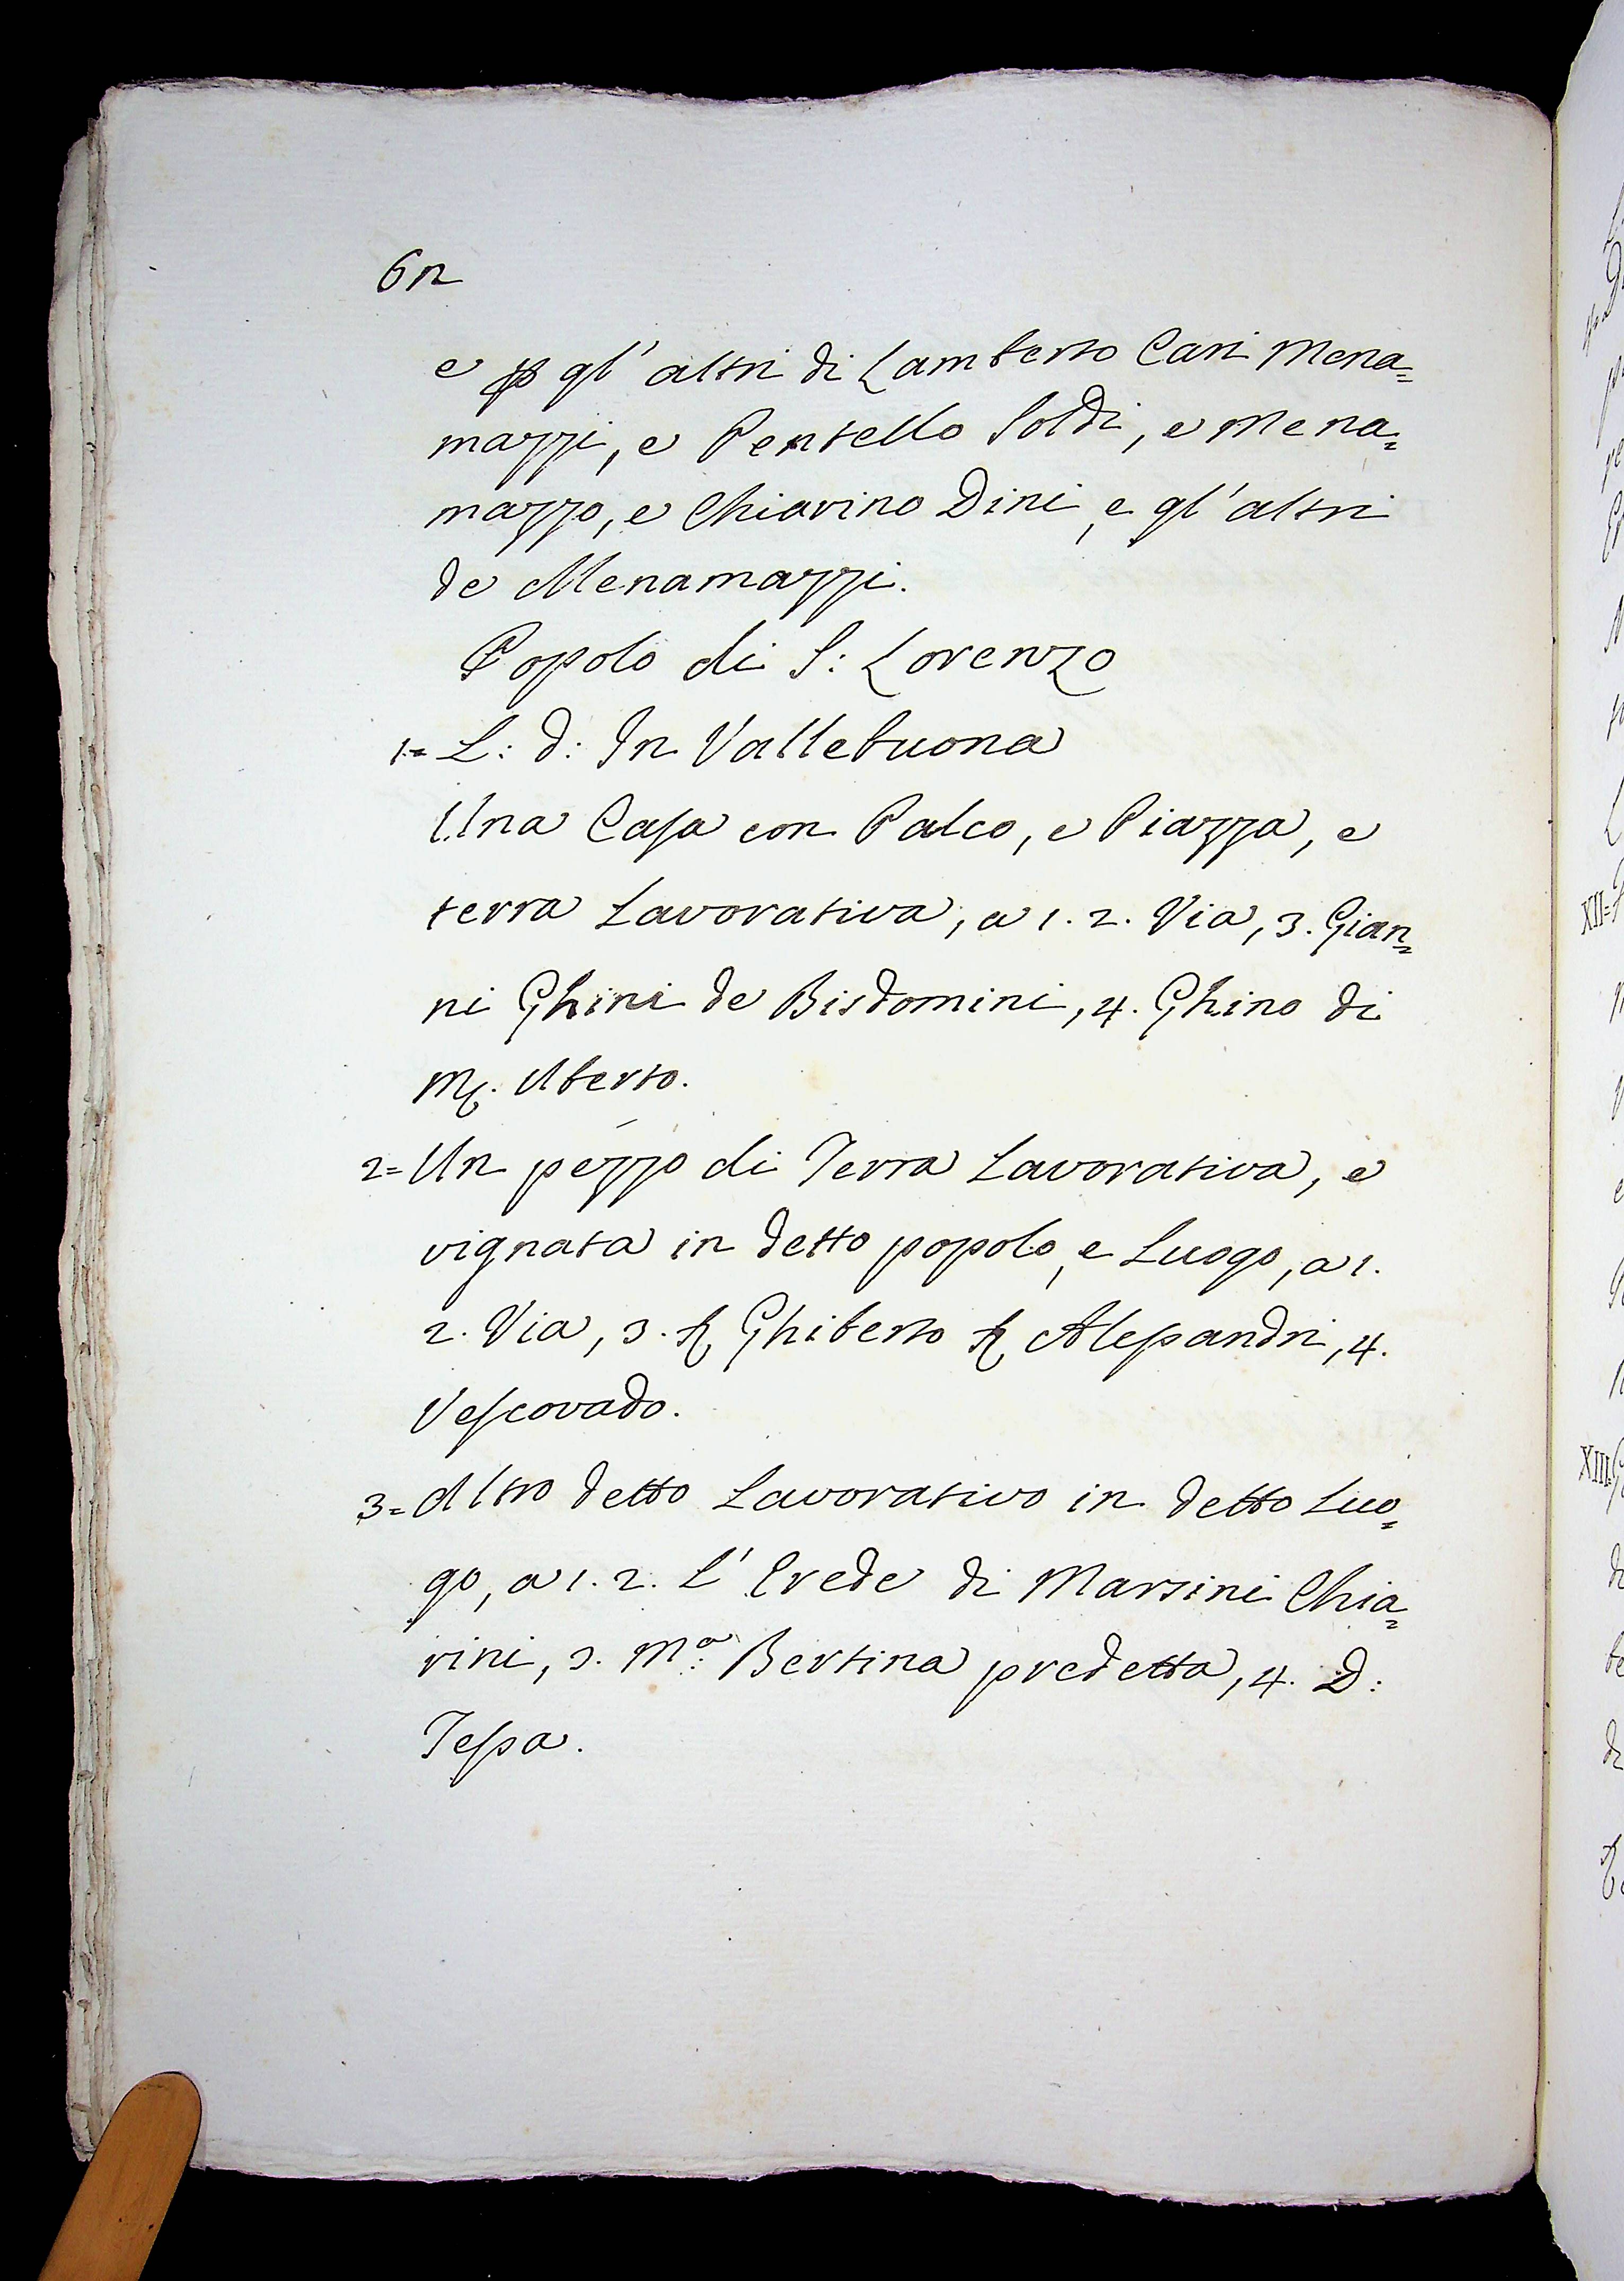 62
e p gl'altri di Lamberto Cari Mena=
mazzi, e Pentello Soldi, e Mena=
mazzo, e Chiarino Dini, e gl'altri
de Menamazzi.
Popolo di S: Lorenzo
1= L: d: In Vallebuona
Una Casa con Palco, e Piazza, e
terra Lavorativa, a 1. 2. Via, 3. Gian=
ni Ghini de Bisdomini, 4. Ghino di
M. Uberto.
2= Un pezzo di Terra Lavorativa, e
vignata in detto popolo, e Luogo, a 1.
2. Via, 3. Ghiberto Alessandri, 4.
Vescovado.
3= Altro detto Lavorativo in detto Luo=
go, a 1. 2. L'Erede di Martini Chia=
rini, 3. M.ª Bertina predetta, 4. D:
Tessa.
XII=
XIII=